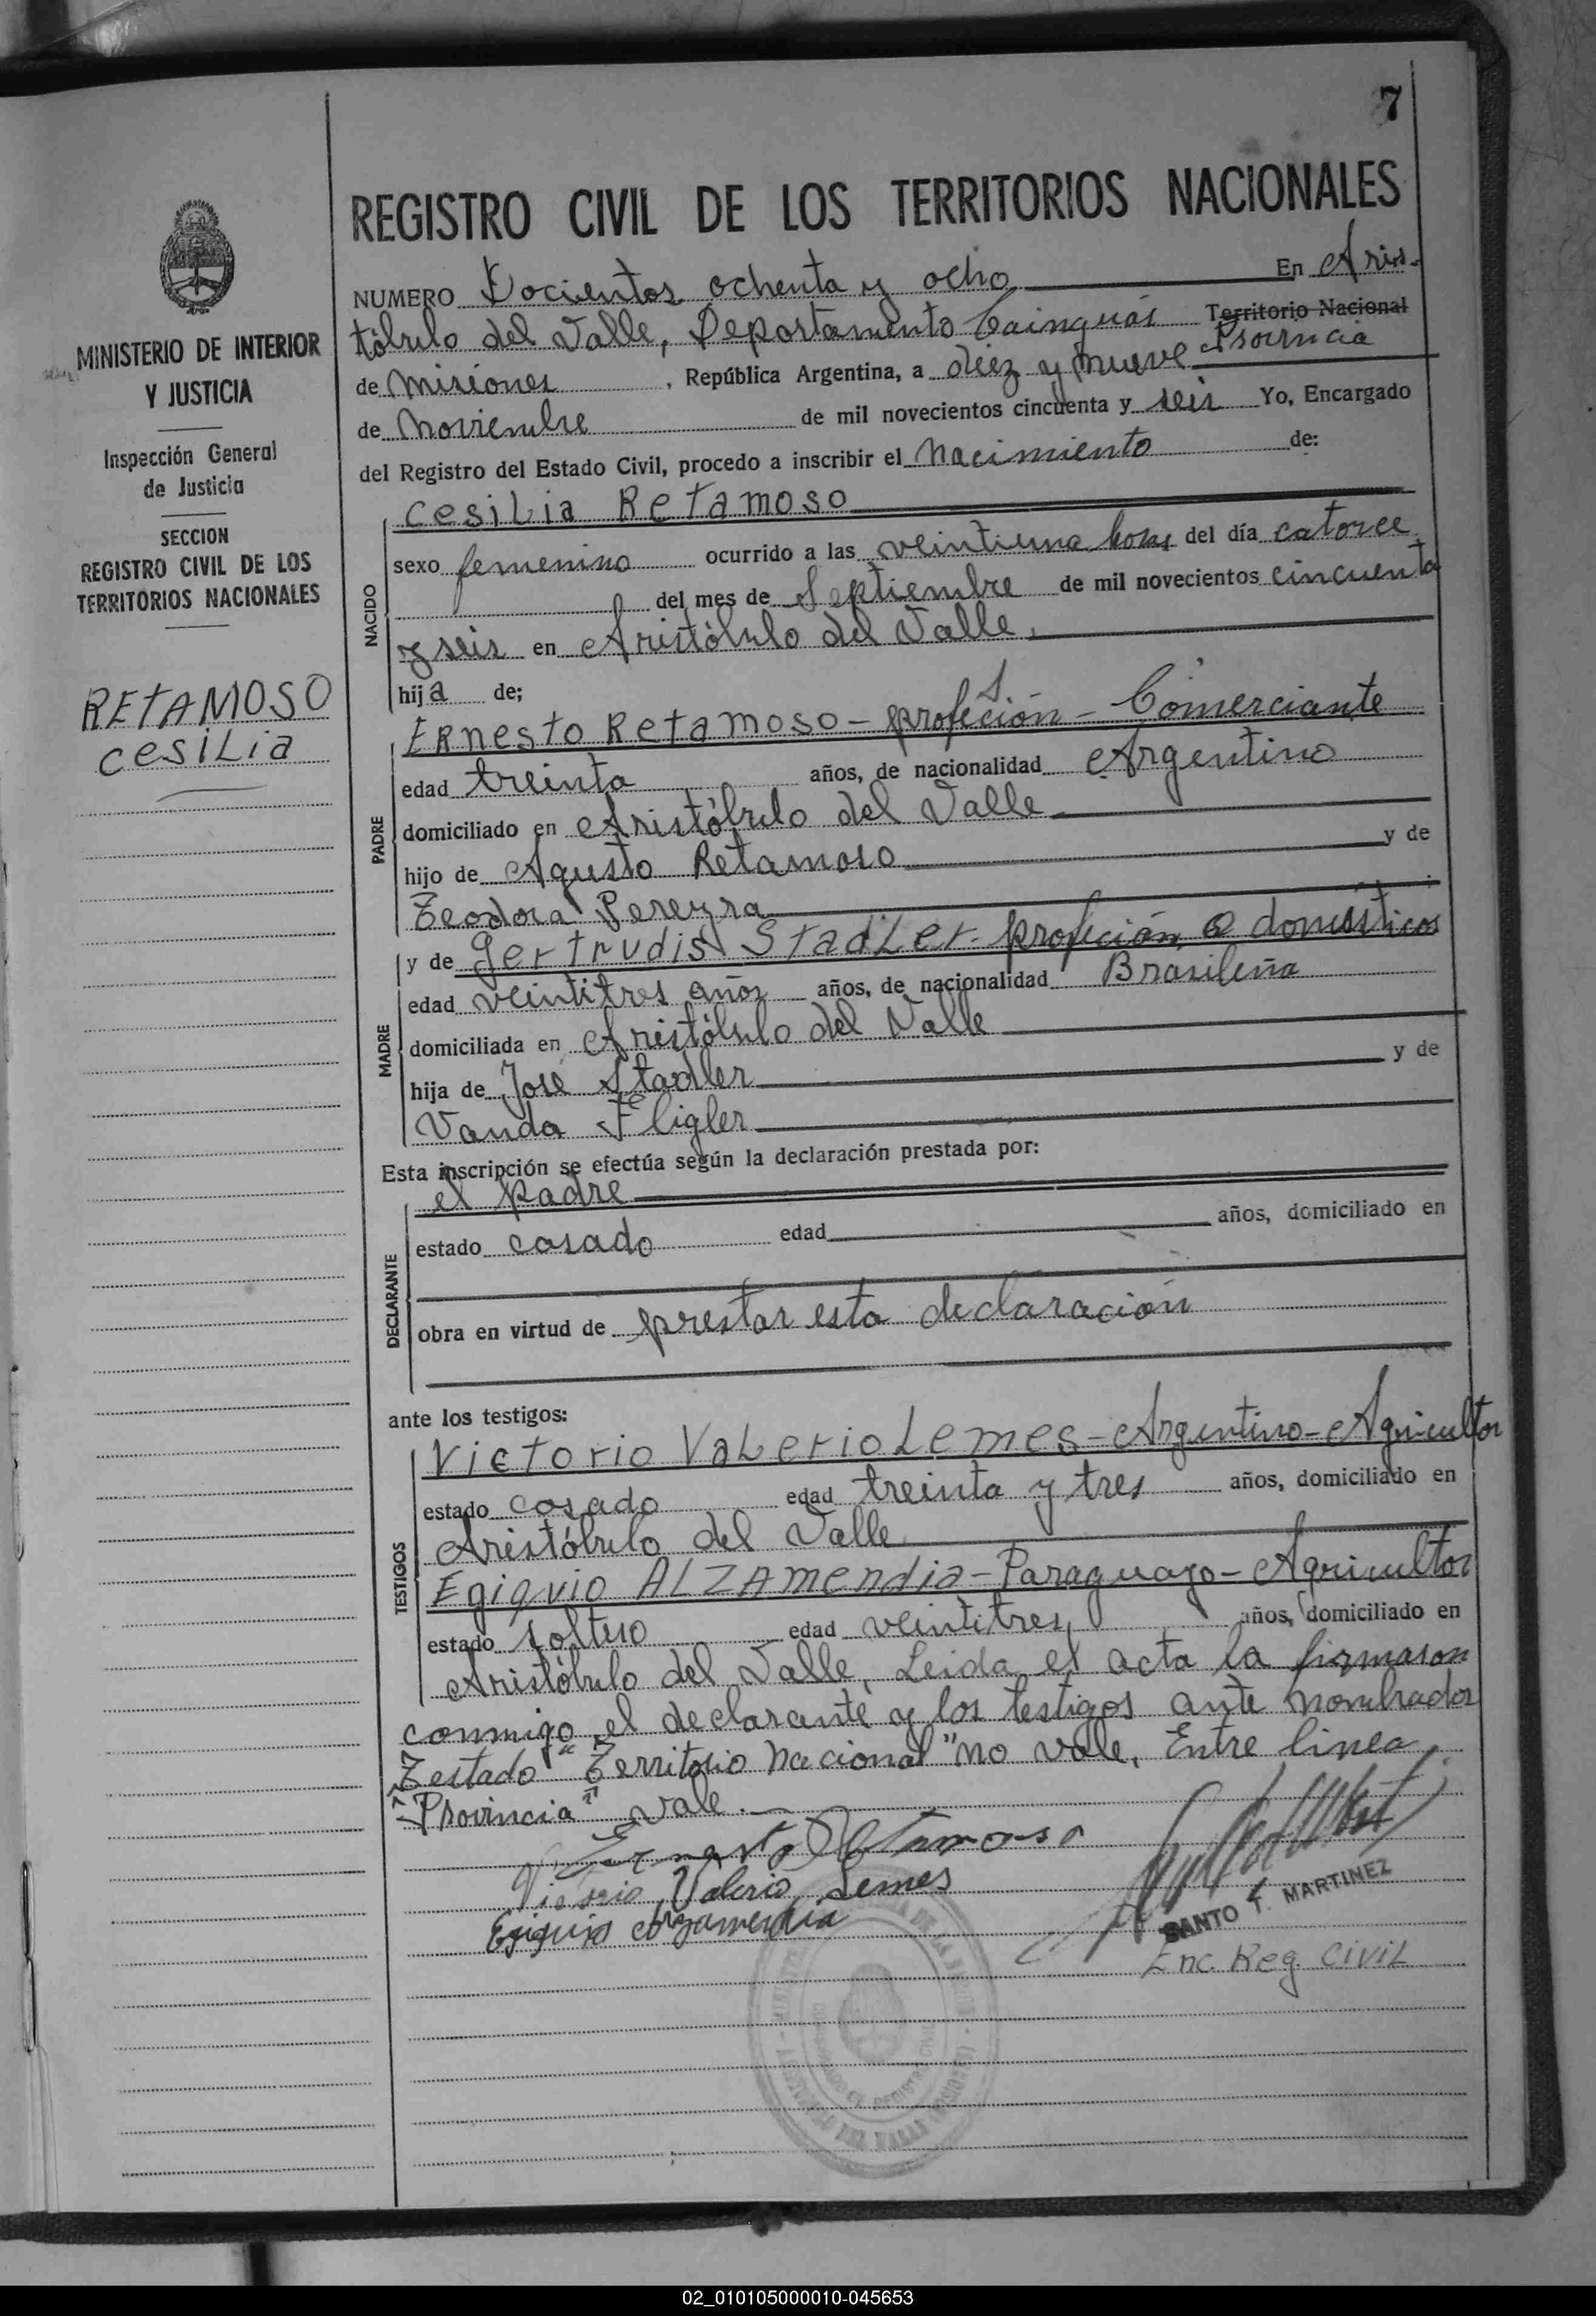 7
REGISTRO CIVIL DE LOS TERRITORIOS NACIONALES
MINISTERIO DE INTERIOR
Y JUSTICIA
Inspección General
de Justicia
SECCION
REGISTRO CIVIL DE LOS
TERRITORIOS NACIONALES
RETAMOSO
CESILIA
NUMERO Docientos ochenta y ocho En Aris-
tóbulo del Valle, Departamento Cainguás Territorio Nacional
Provincia
de Misiones, República Argentina, a diez y nueve
de Noviembre de mil novecientos cincuenta y seis Yo, Encargado
del Registro del Estado Civil, procedo a inscribir el Nacimiento de:
NACIDO
Cesilia Retamoso
sexo femenino ocurrido a las veintiuna horas del día catorce
del mes de Septiembre de mil novecientos cincuenta
y seis en Aristóbulo del Valle,
hija de;
PADRE
S.
Ernesto Retamoso - profeción - Comerciante
edad treinta años, de nacionalidad Argentino
domiciliado en Aristóbulo del Valle
hijo de Agusto Retamoso y de
Teodora Pereyra
MADRE
y de Gertrudis Stadler - profeción Q domésticos
edad veintitres años años, de nacionalidad Brasileña
domiciliada en Aristóbulo del Valle
hija de José Stadler y de
Vanda Fligler
Esta inscripción se efectúa según la declaración prestada por:
DECLARANTE
el padre
estado casado edad años, domiciliado en
obra en virtud de prestar esta declaración
ante los testigos:
TESTIGOS
Victorio Valerio Lemes - Argentino - Agricultor
estado casado edad treinta y tres años, domiciliado en
Aristóbulo del Valle
Egiquio Alzamendia - Paraguayo - Agricultor
estado soltero edad veintitres años, domiciliado en
Aristóbulo del Valle, Leida el acta la firmaron
conmigo el declarante y los testigos ante nombrados
Testado "Territorio Nacional" no vale, Entre linea
"Provincia" vale.
Ernesto Retamoso
Victorio Valerio Lemes
Egiquio Alzamendia
SANTO T. MARTINEZ
Enc. Reg. Civil
02_010105000010-045653